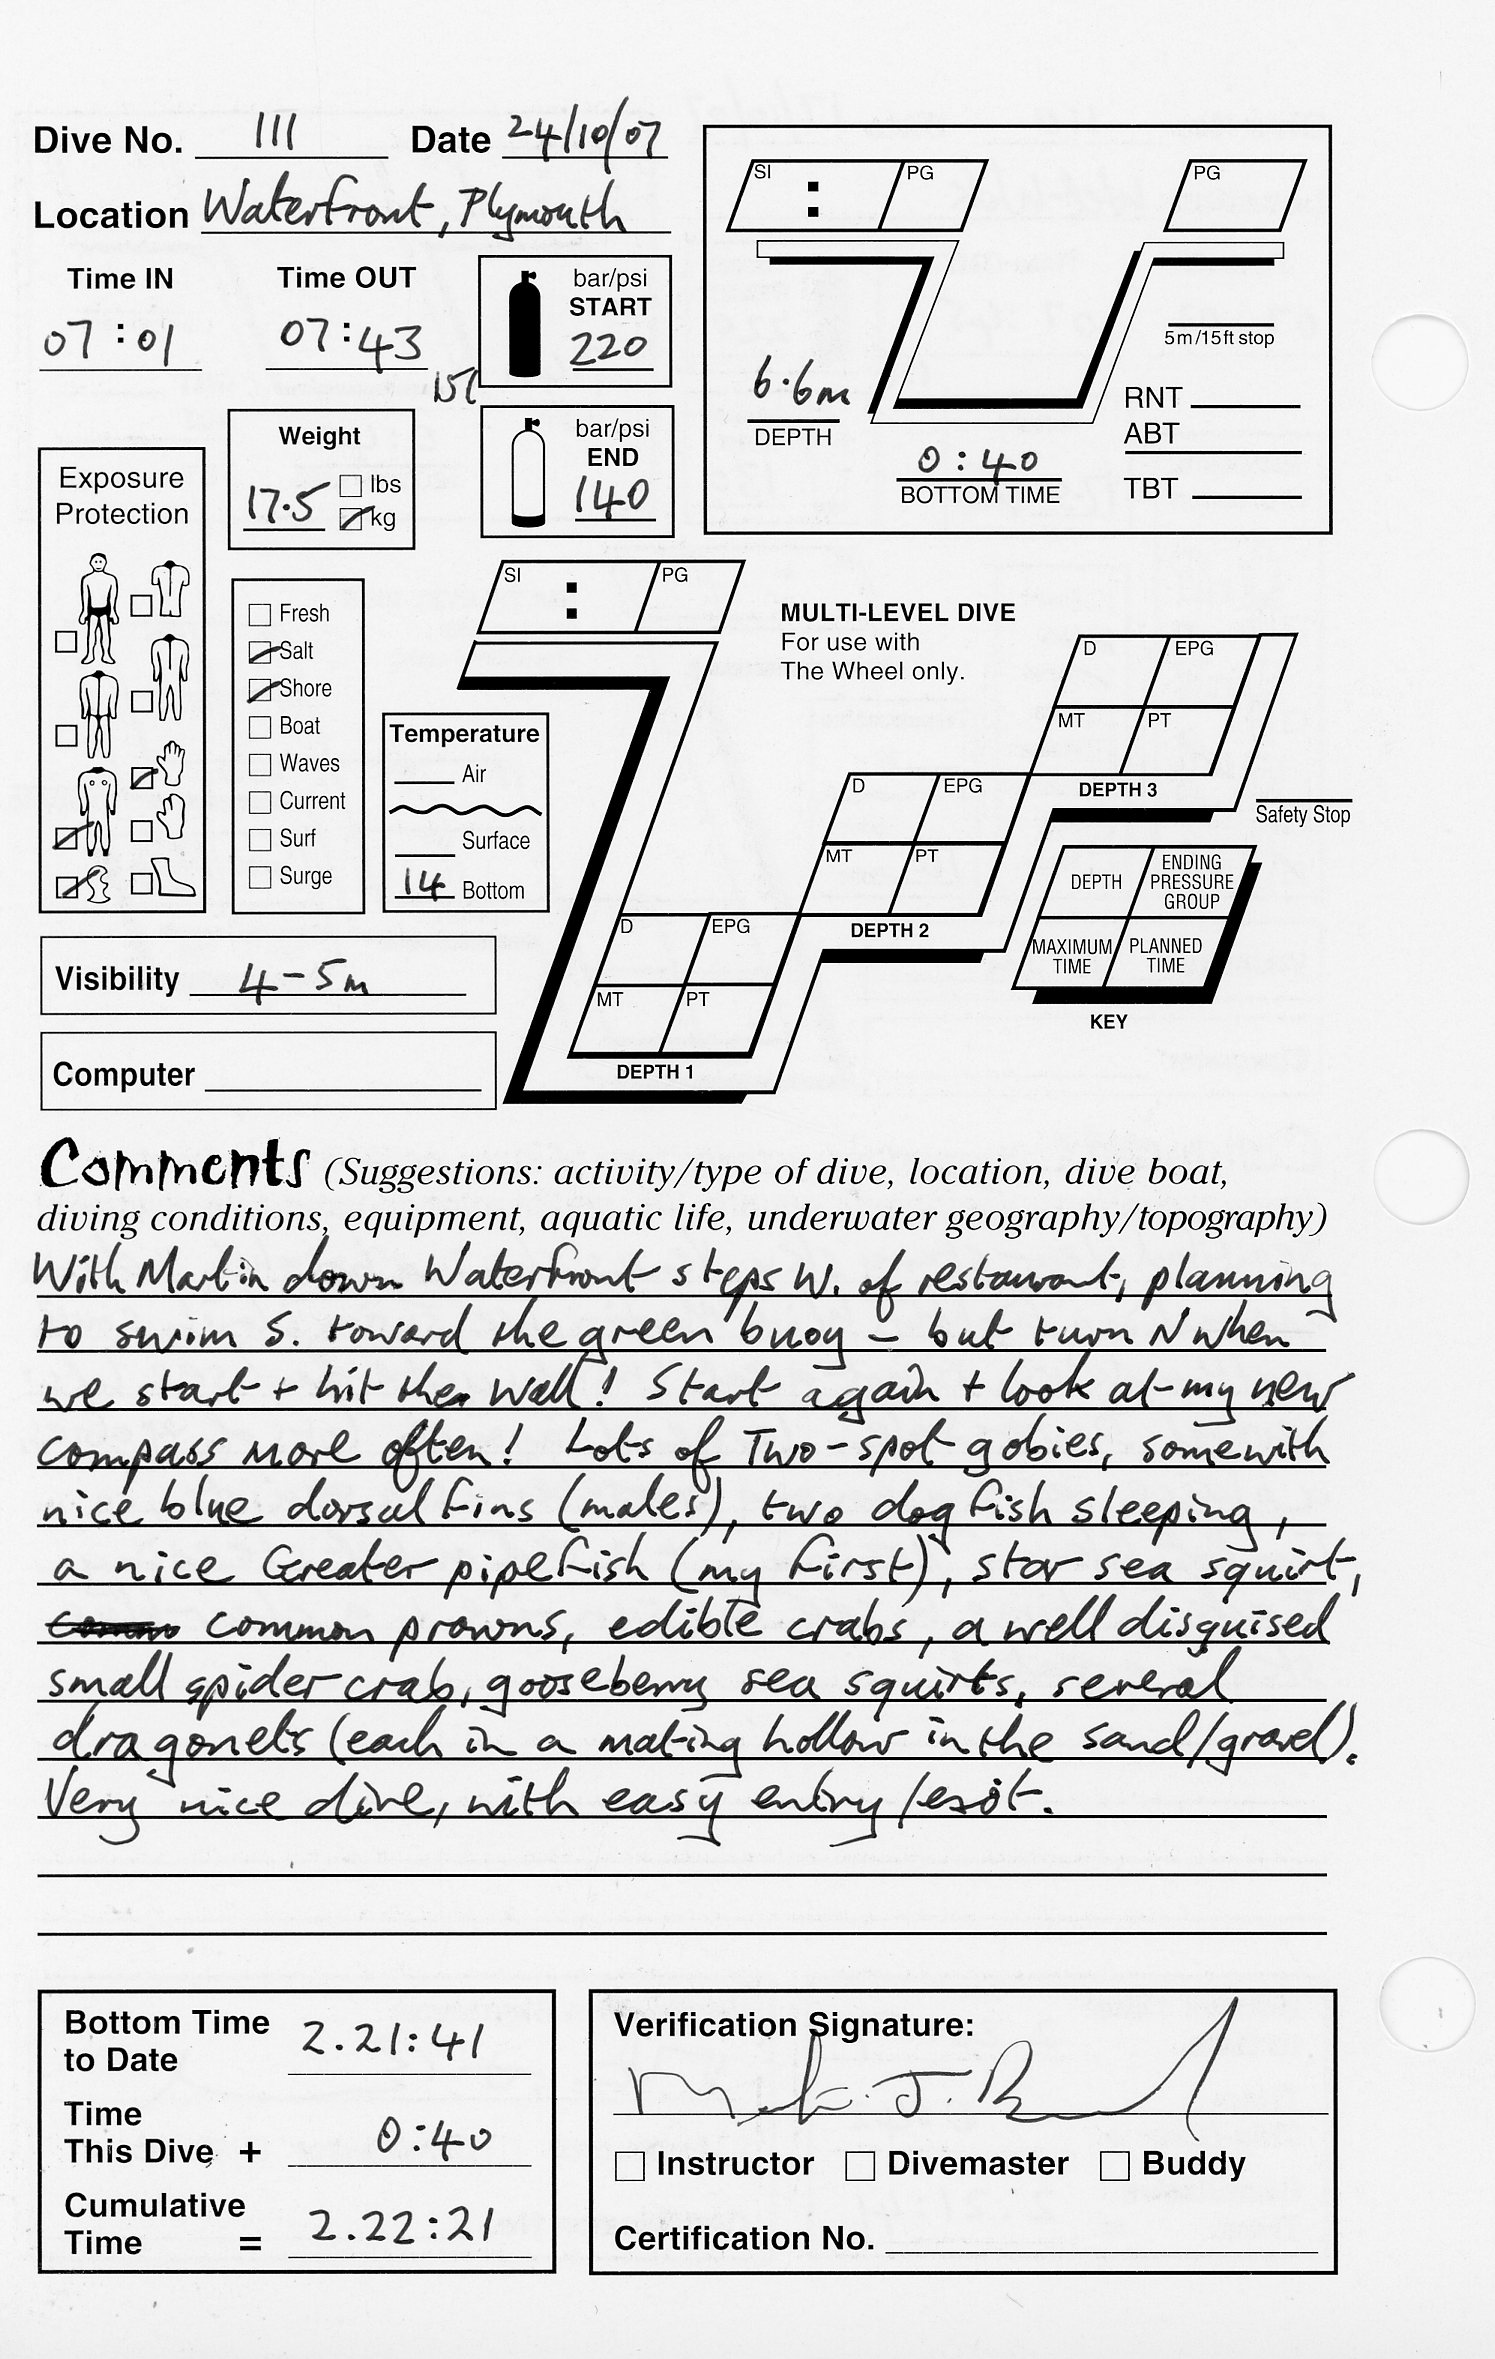 Dive No. 111 Date 24/10/07
Location Waterfront, Plymouth
Time IN Time OUT
07:01 07:43
15l
bar/psi
START
220
bar/psi
END
140
Weight
17.5
lbs
kg
Exposure
Protection
Fresh
Salt
Shore
Boat
Waves
Current
Surf
Surge
Temperature
Air
Surface
14 Bottom
Visibility 4-5m
Computer
SI : PG
PG
5m/15ft stop
6.6m
DEPTH
0:40
BOTTOM TIME
RNT
ABT
TBT
SI : PG
MULTI-LEVEL DIVE
For use with
The Wheel only.
D EPG
MT PT
DEPTH 1
D EPG
MT PT
DEPTH 2
D EPG
MT PT
DEPTH 3
Safety Stop
DEPTH
ENDING
PRESSURE
GROUP
MAXIMUM
TIME
PLANNED
TIME
KEY
Comments (Suggestions: activity/type of dive, location, dive boat,
diving conditions, equipment, aquatic life, underwater geography/topography)
With Martin down Waterfront steps W. of restaurant, planning
to swim S. toward the green buoy - but turn N when
we start + hit the wall! Start again + look at my new
compass more often! Lots of Two-spot gobies, some with
nice blue dorsal fins (males), two dogfish sleeping,
a nice Greater pipefish (my first), star sea squirt,
common prawns, edible crabs, a well disguised
small spider crab, gooseberry sea squirts, several
dragonets (each in a mating hollow in the sand/gravel).
Very nice dive, with easy entry/exit.
Bottom Time
to Date 2.21:41
Time
This Dive + 0:40
Cumulative
Time = 2.22:21
Verification Signature:
Instructor Divemaster Buddy
Certification No.